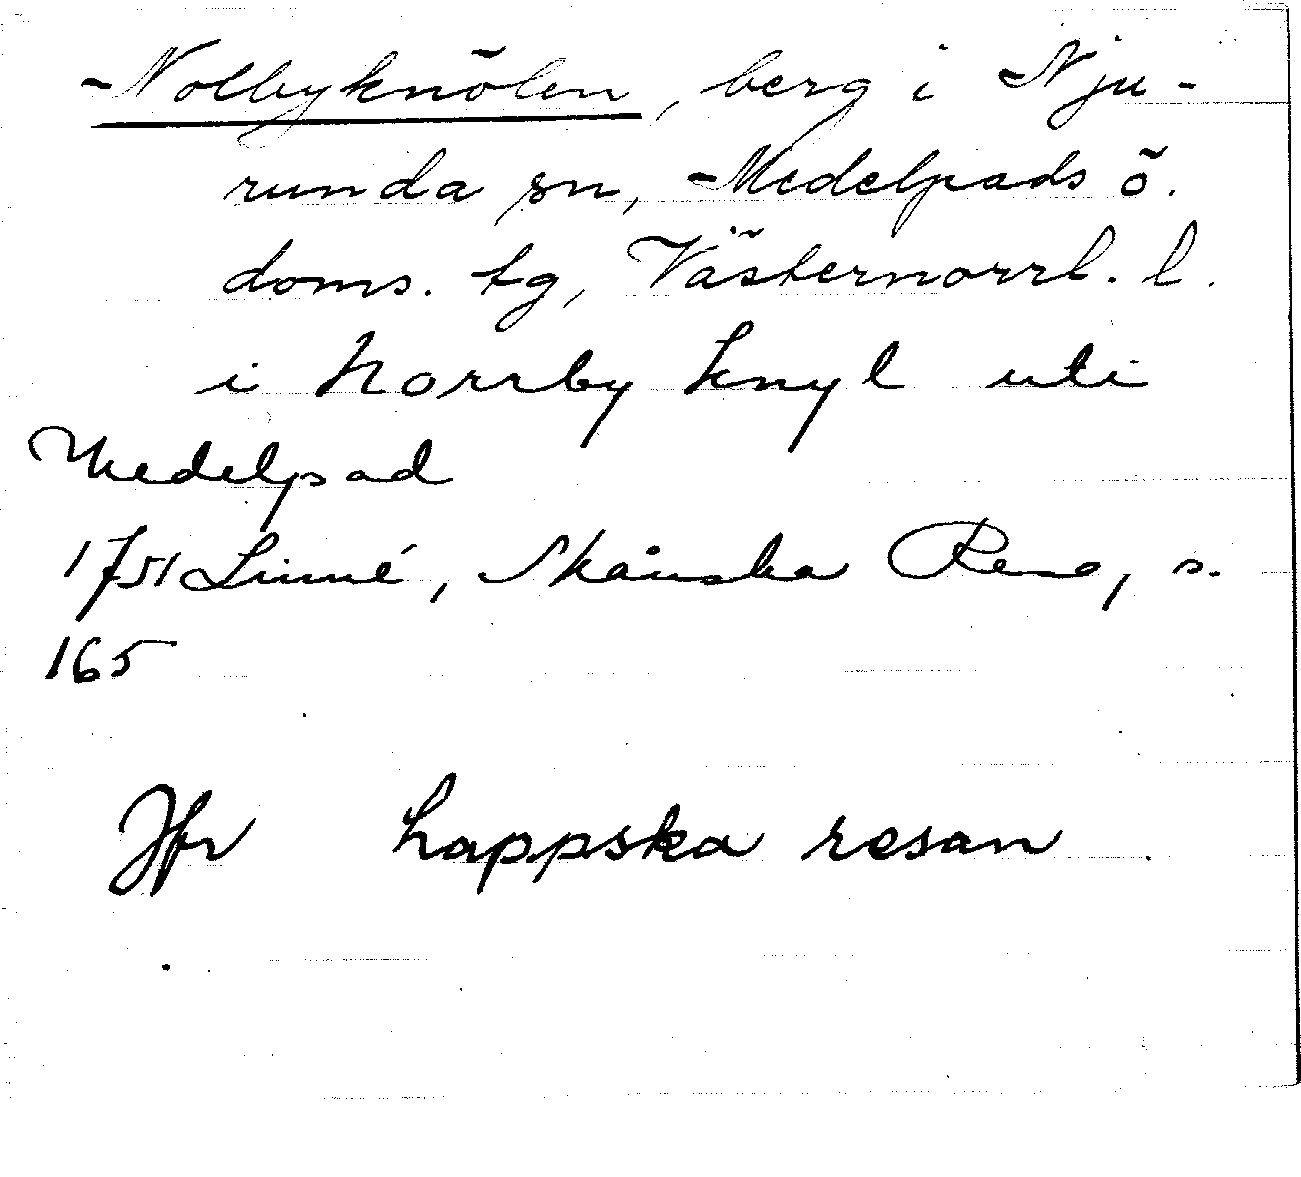 Nolbyknölen, berg i Nju-
runda sn, Medelpads ö.
doms. tg, Västernorrl. l.
i Norrby Knyl uti
Medelpad
1751 Linné, Skånska Resa, s.
165
Jfr Lappska resan